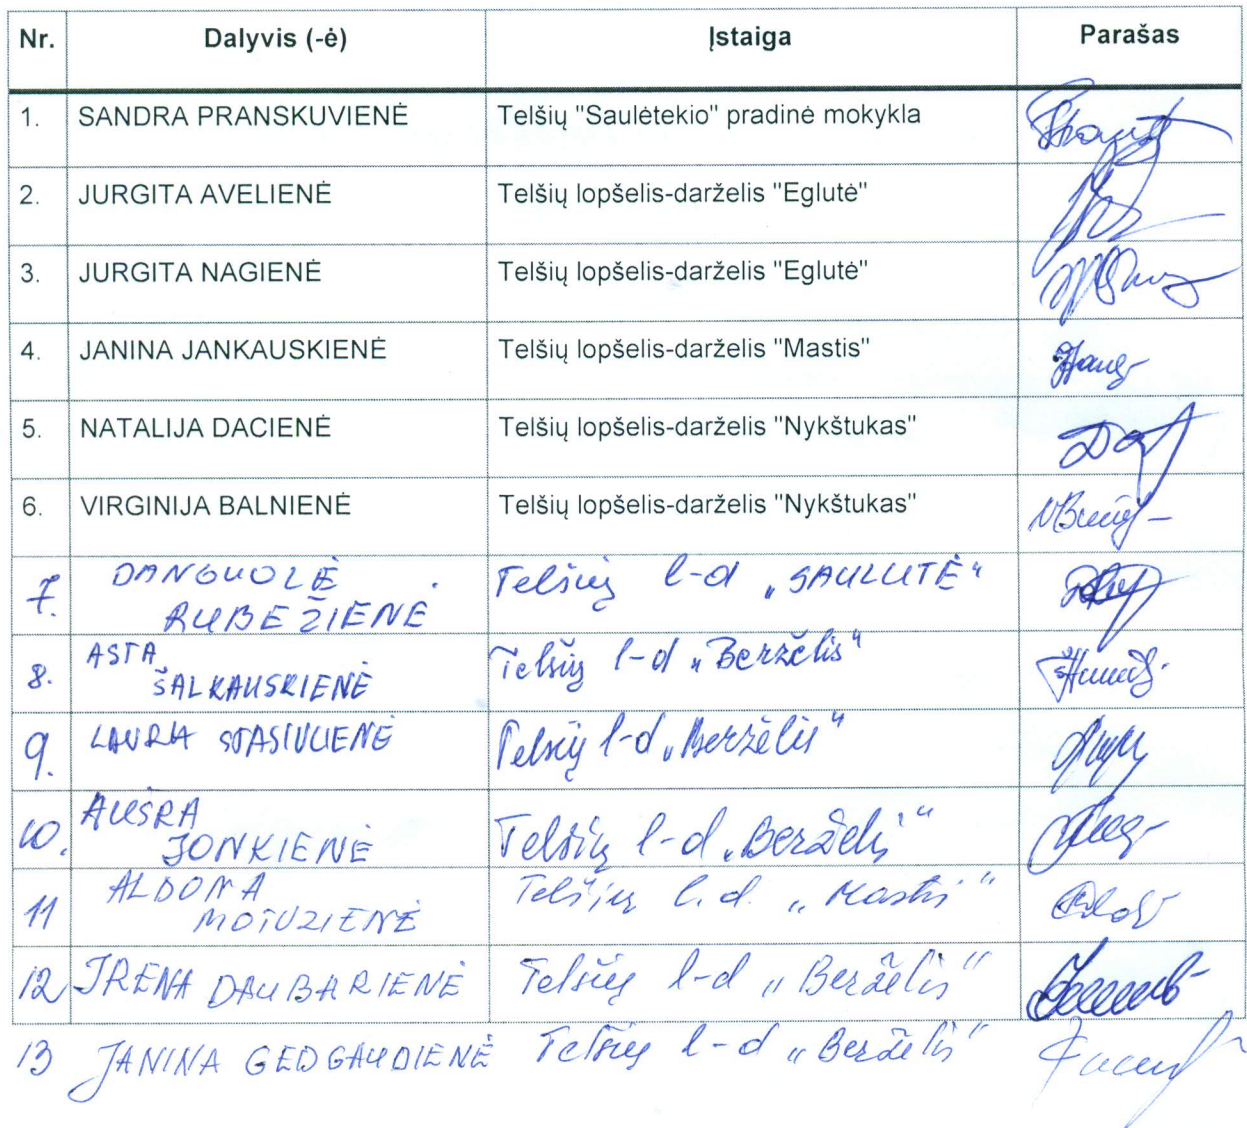 Nr. Dalyvis (-ė) Įstaiga Parašas
1. SANDRA PRANSKUVIENĖ Telšių "Saulėtekio" pradinė mokykla
2. JURGITA AVELIENĖ Telšių lopšelis-darželis "Eglutė"
3. JURGITA NAGIENĖ Telšių lopšelis-darželis "Eglutė"
4. JANINA JANKAUSKIENĖ Telšių lopšelis-darželis "Mastis"
5. NATALIJA DACIENĖ Telšių lopšelis-darželis "Nykštukas"
6. VIRGINIJA BALNIENĖ Telšių lopšelis-darželis "Nykštukas"
7. DANGUOLĖ Telšių l-d „SAULUTĖ“
RUBEŽIENĖ
8. ASTA Telšių l-d „Berželis“
ŠALKAUSKIENĖ
9. LAURA Telšių l-d „Berželis“
10. AUŠRA Telšių l-d „Berželis“
JONKIENĖ
11 ALDONA Telšių l.d. „Mastis“
MOTUZIENĖ
12 IRENA DAUBARIENĖ Telšių l-d „Berželis“
13 JANINA GEDGAUDIENĖ Telšių l-d „Berželis“